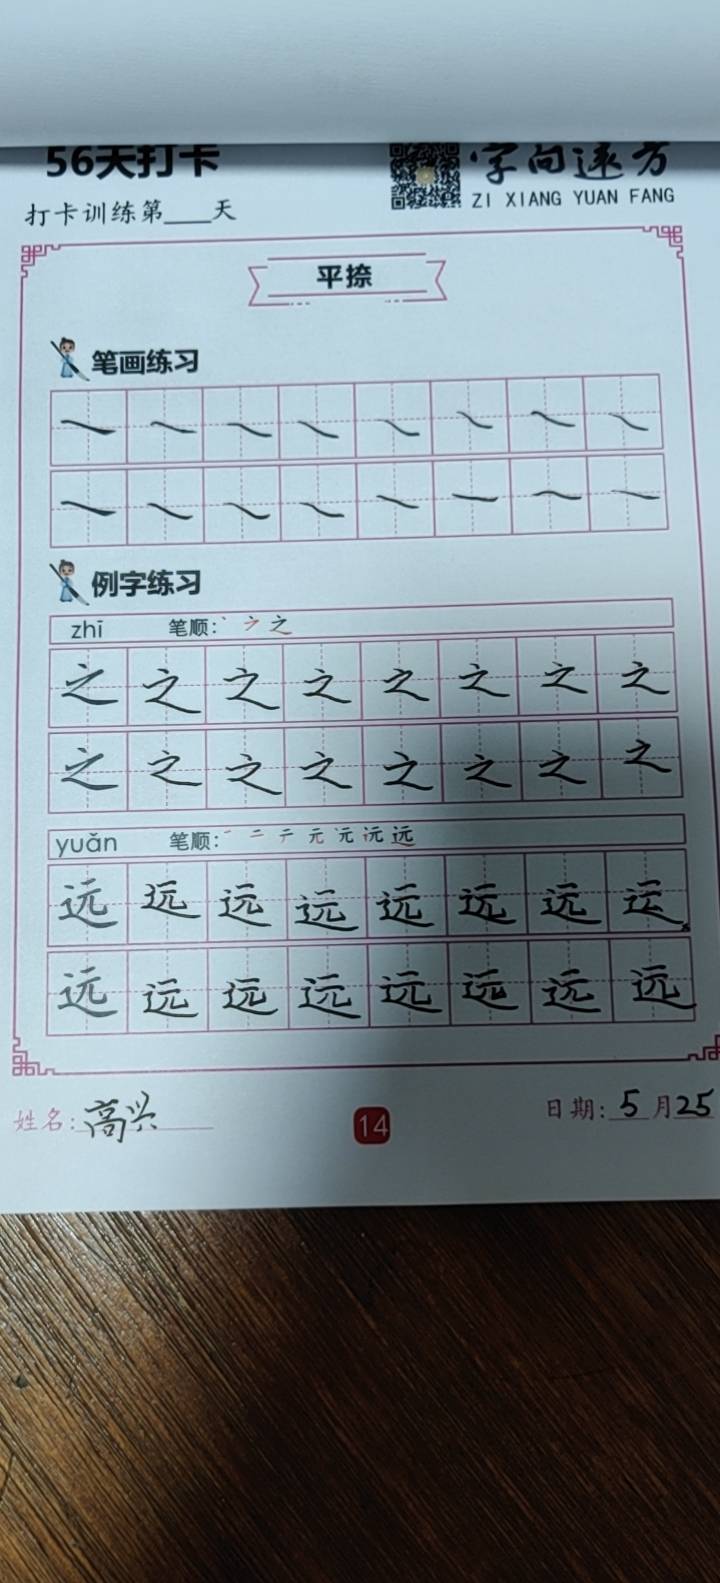 56天打卡
字向远方
ZI XIANG YUAN FANG
打卡训练第____天
平捺
笔画练习
例字练习
zhī 笔顺: 丶 ㇇ 之
之 之 之 之 之 之 之 之
之 之 之 之 之 之 之 之
yuǎn 笔顺: 一 二 テ 元 元 远 远
远 远 远 远 远 远 远 远
远 远 远 远 远 远 远 远
姓名: 高兴
14
日期: 5月25